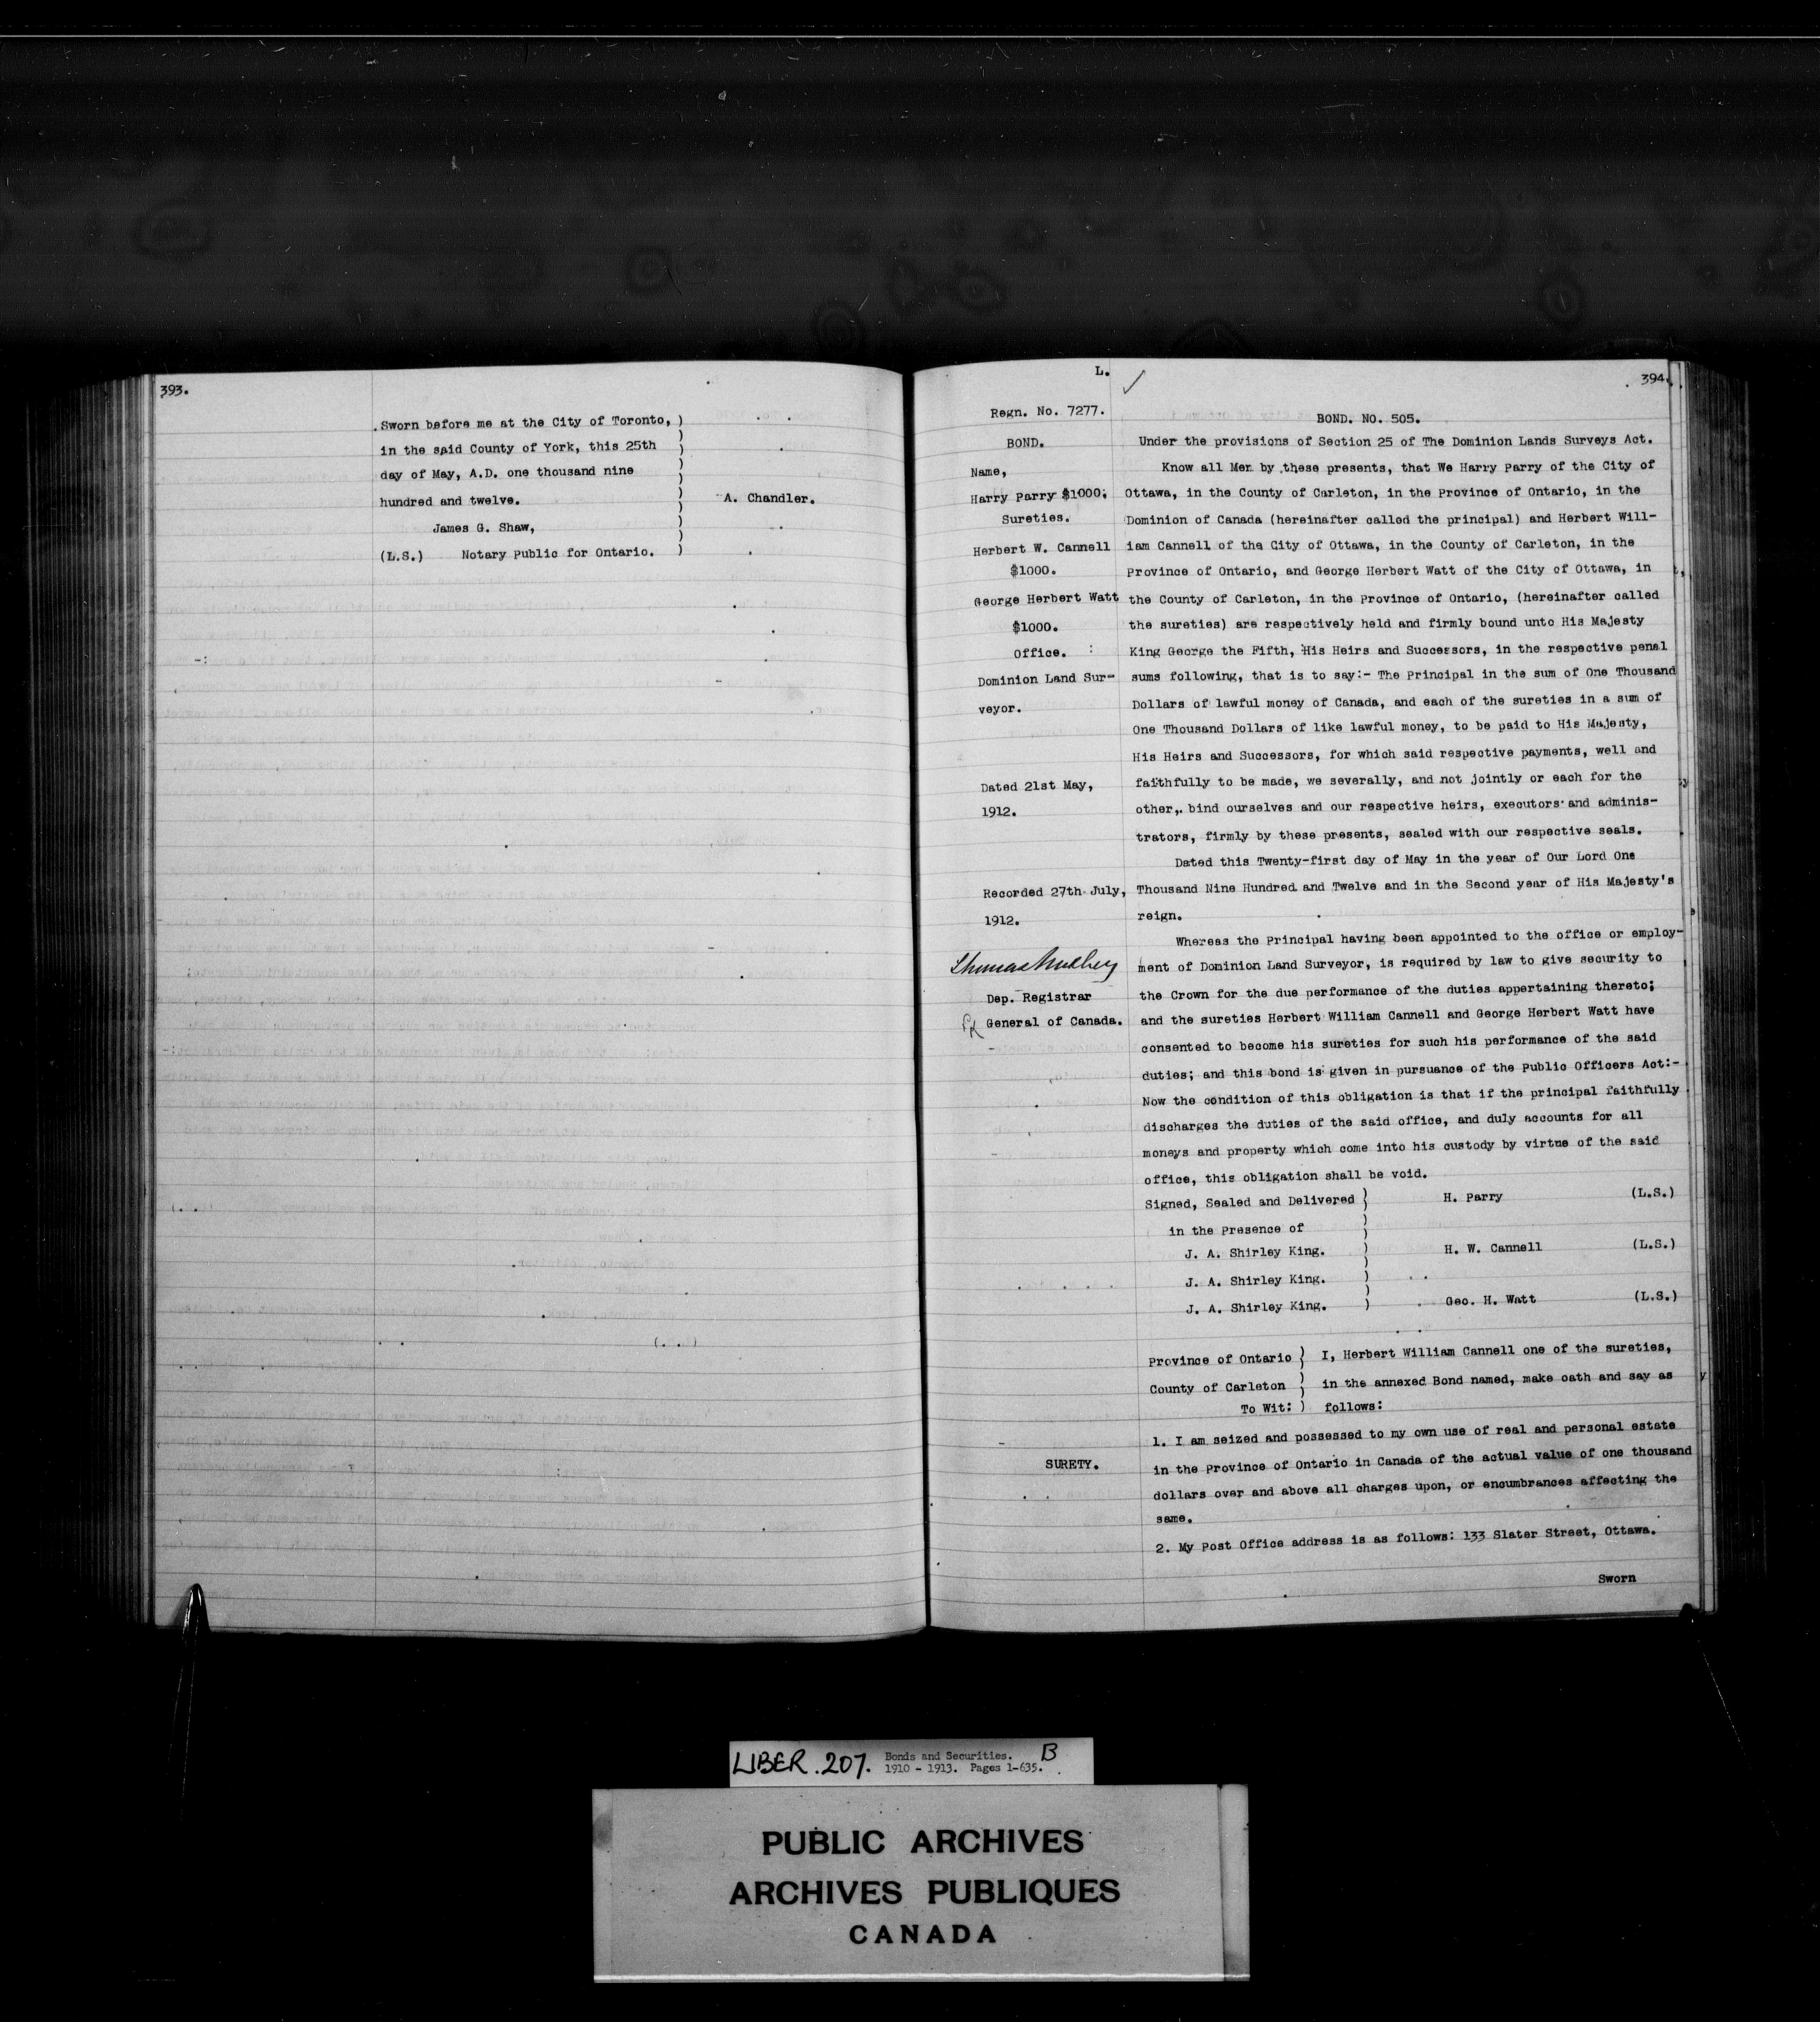 393.
Sworn before me at the City of Toronto, )
in the said County of York, this 25th )
day of May, A.D. one thousand nine )
hundred and twelve. ) A. Chandler.
James G. Shaw, )
(L.S.) Notary Public for Ontario. )
L.
394.
Regn. No. 7277.
BOND.
Name,
Harry Parry $1000.
Sureties.
Herbert W. Cannell
$1000.
George Herbert Watt
$1000.
Office.
Dominion Land Sur-
veyor.
Dated 21st May,
1912.
Recorded 27th July,
1912.
Dep. Registrar
General of Canada.
SURETY.
BOND. NO. 505.
Under the provisions of Section 25 of The Dominion Lands Surveys Act.
Know all Men by these presents, that We Harry Parry of the City of
Ottawa, in the County of Carleton, in the Province of Ontario, in the
Dominion of Canada (hereinafter called the principal) and Herbert Will-
iam Cannell of the City of Ottawa, in the County of Carleton, in the
Province of Ontario, and George Herbert Watt of the City of Ottawa, in
the County of Carleton, in the Province of Ontario, (hereinafter called
the sureties) are respectively held and firmly bound unto His Majesty
King George the Fifth, His Heirs and Successors, in the respective penal
sums following, that is to say:- The Principal in the sum of One Thousand
Dollars of lawful money of Canada, and each of the sureties in a sum of
One Thousand Dollars of like lawful money, to be paid to His Majesty,
His Heirs and Successors, for which said respective payments, well and
faithfully to be made, we severally, and not jointly or each for the
other, bind ourselves and our respective heirs, executors and adminis-
trators, firmly by these presents, sealed with our respective seals.
Dated this Twenty-first day of May in the year of Our Lord One
Thousand Nine Hundred and Twelve and in the Second year of His Majesty's
reign.
Whereas the Principal having been appointed to the office or employ-
ment of Dominion Land Surveyor, is required by law to give security to
the Crown for the due performance of the duties appertaining thereto;
and the sureties Herbert William Cannell and George Herbert Watt have
consented to become his sureties for such his performance of the said
duties; and this bond is given in pursuance of the Public Officers Act:-
Now the condition of this obligation is that if the principal faithfully
discharges the duties of the said office, and duly accounts for all
moneys and property which come into his custody by virtue of the said
office, this obligation shall be void.
Signed, Sealed and Delivered ) H. Parry (L.S.)
in the Presence of )
J. A. Shirley King. ) H. W. Cannell (L.S.)
J. A. Shirley King. )
J. A. Shirley King. ) Geo. H. Watt (L.S.)
Province of Ontario ) I, Herbert William Cannell one of the sureties,
County of Carleton ) in the annexed Bond named, make oath and say as
To Wit: ) follows:
1. I am seized and possessed to my own use of real and personal estate
in the Province of Ontario in Canada of the actual value of one thousand
dollars over and above all charges upon, or encumbrances affecting the
same.
2. My Post Office address is as follows: 133 Slater Street, Ottawa.
Sworn
LIBER.207. Bonds and Securities. B
1910 - 1913. Pages 1-635.
PUBLIC ARCHIVES
ARCHIVES PUBLIQUES
CANADA